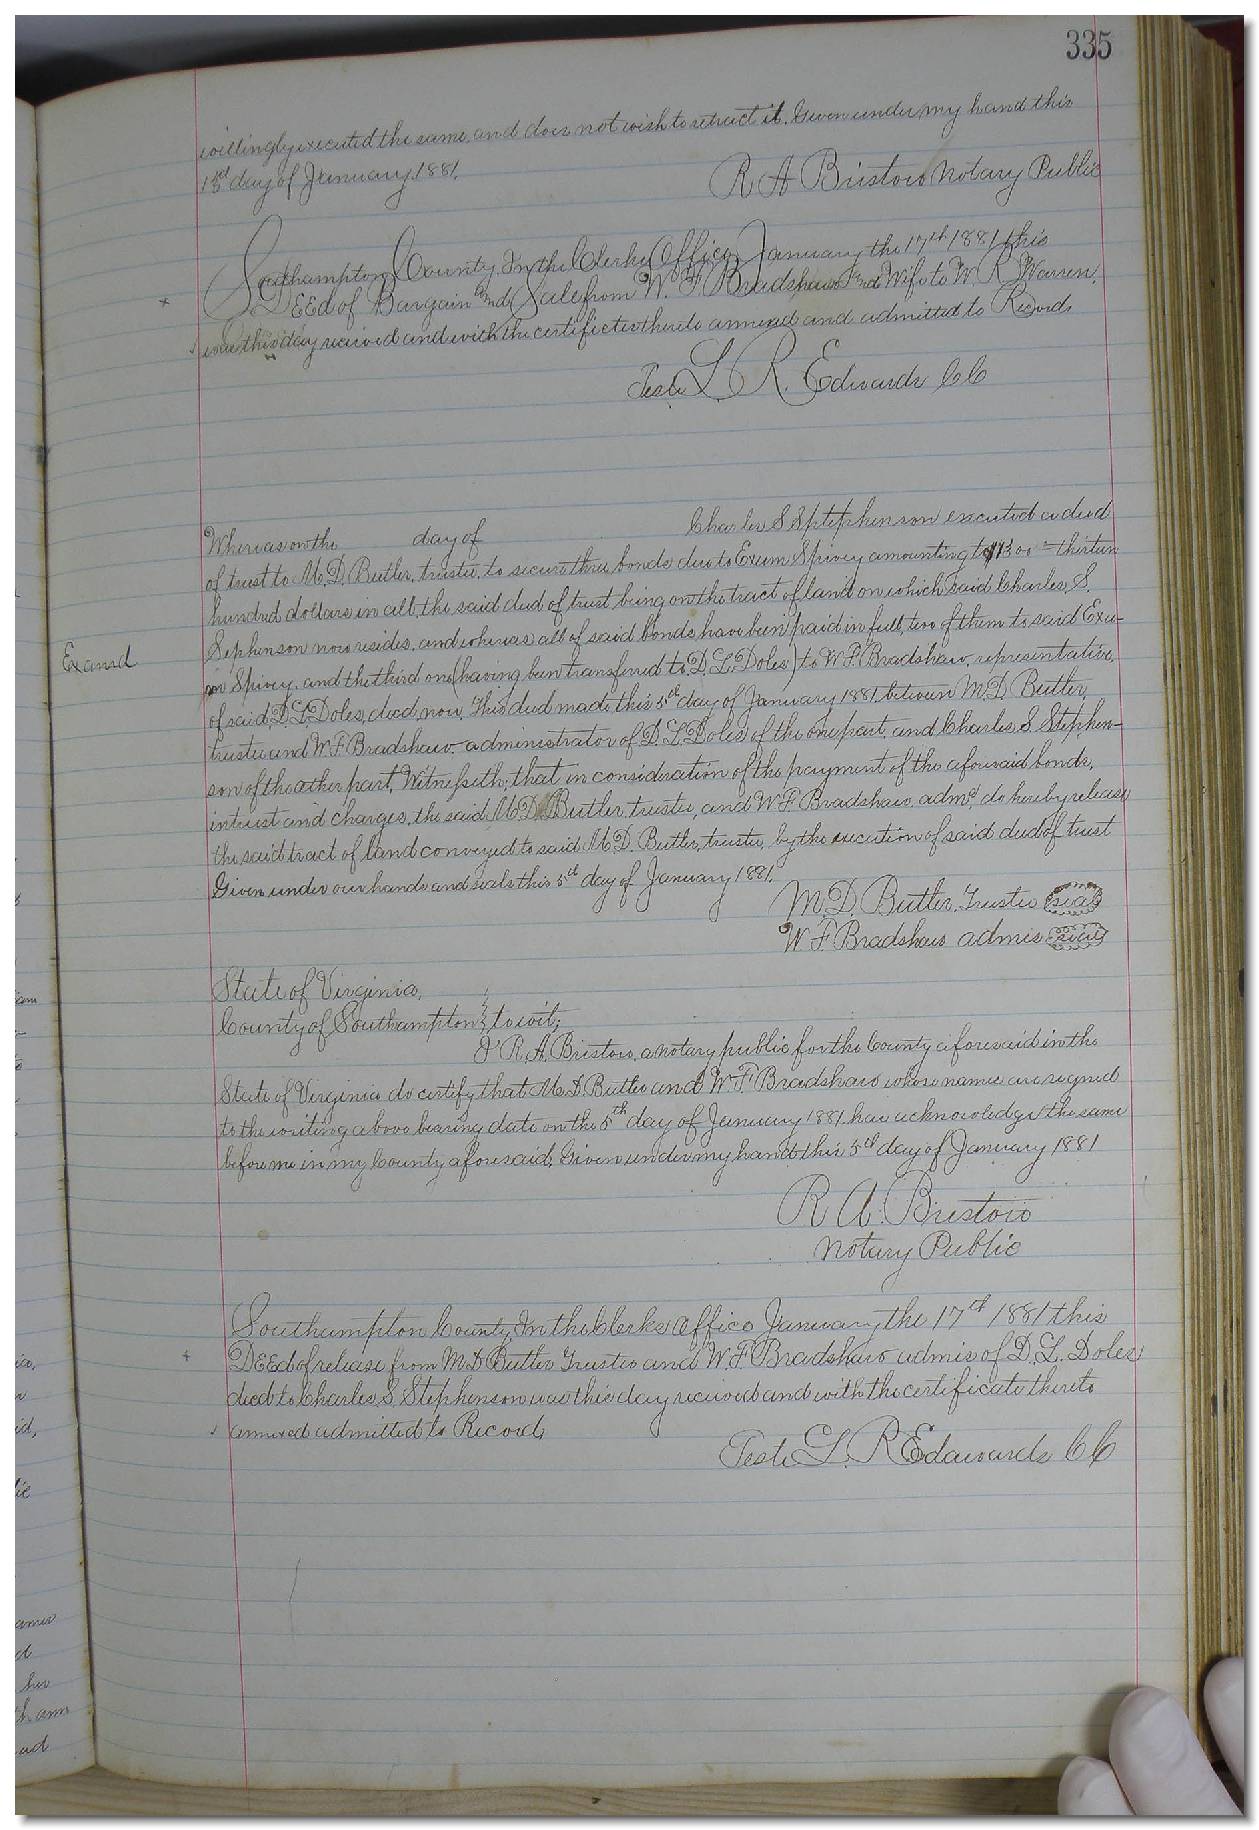 335
willingly executed the same, and does not wish to retract it. Given under my hand this
day of January 1881.
R A Bristow Notary Public
Southampton County In the Clerks Office January the 17th 1881 this
DEEd of Bargain and Sale from W. F Bradshaw And Wife to W. R Warren.
was this day recived and with the certificates thereto annexed and admitted to Record
Teste L R. Edwards CC
Whereas on the day of Charles S Sptephenson executed a deed
of trust to M. D. Butler, trustee, to secure three bonds due to Exum Spivey amounting to $1300 = thirteen
hundred dollars in all, the said deed of trust being on the tract of land on which said Charles S.
Sephenson now resides, and whereas all of said bonds have been paid in full, two of them to said Exu-
m Spivey, and the third one (having been transferred to D. L. Doles) to W F Bradshaw, representative,
of said, D L. Doles, decd, now, This deed made this 5th day of January 1881, between M. D. Butler,
trustee and W. F Bradshaw administrator of D. L. Doles of the one part, and Charles S. Stephen-
son of the other part, Witnesseth; that in consideration of the payment of the aforesaid bonds,
intrust and charges, the said M D. Butler, trustee, and W F. Bradshaw, admr. do hereby release
the said tract of land conveyed to said M. D. Butler, trustee, by the execution of said deed of trust
Given under our hands and seals this 5th day of January 1881.
M. D. Butler, Trustee seal
W F Bradshaw admis seal
Examd
State of Virginia,
County of Southampton to wit;
I R. A. Bristow, a notary public for the County aforesaid in the
State of Virginia do certify that M. D. Butler and W. F. Bradshaw whose names are signed
to the writing above bearing date on the 5th day of January 1881, have acknowledged the same
before me in my County aforesaid. Given under my hand this 5th day of January 1881
R A. Bristow
Notary Public
Southampton County In the Clerks Office January the 17th 1881 this
DEEd of release from M D Butler Trustee and W. F Bradshaw admis of D. L. Doles
decd to Charles S. Stephenson was this day received and with the certificate thereto
annexed admitted to Record,
Teste L. R Edawards CC